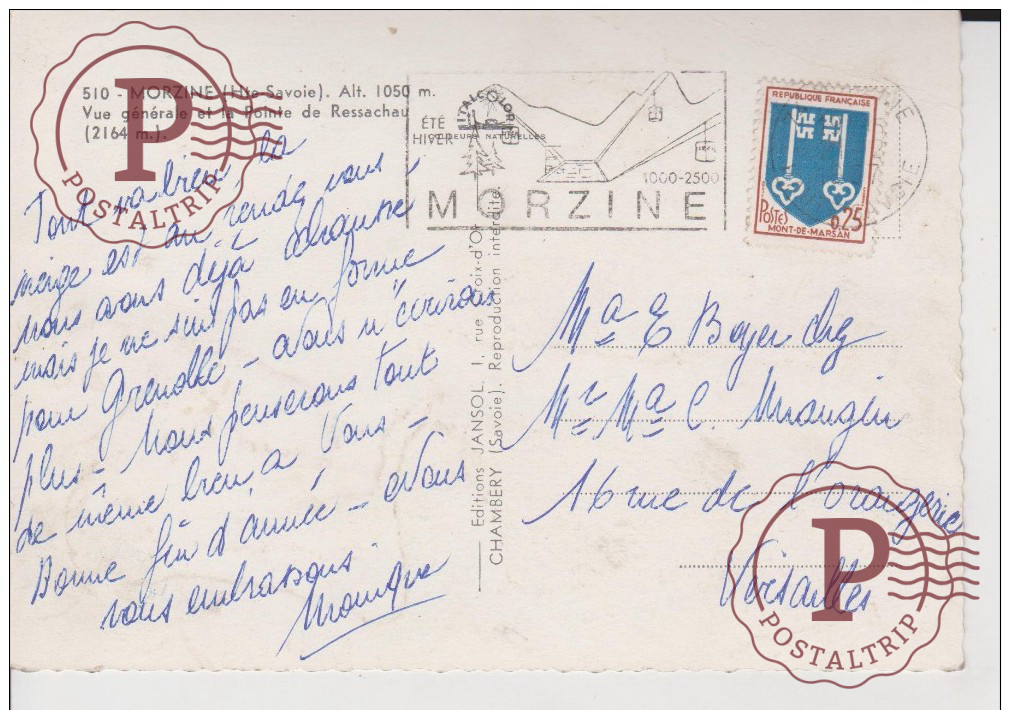 510 - MORZINE (Hte Savoie). Alt. 1050 m.
Vue générale et la Pointe de Ressachau
(2164 m.).
POSTALTRIP
Tout va bien la
neige est au rendez vous,
nous avons déjà chaussé
mais je ne suis pas en forme
pour Grenoble - Nous n'écrirons
plus - Nous penserons tout
de même bien à Vous -
Bonne fin d'année - Nous
vous embrassons
Monique
ITALCOLOR
COULEURS NATURELLES
ÉTÉ
HIVER
1000-2500
MORZINE
Editions JANSOL. 1, rue Croix-d'Or
CHAMBERY (Savoie). Reproduction interdite
REPUBLIQUE FRANÇAISE
POSTES 0,25
MONT-DE-MARSAN
Ma E Boyer chez
Mr Ma C. Mangin
16 rue de l'orangerie
Versailles
POSTALTRIP